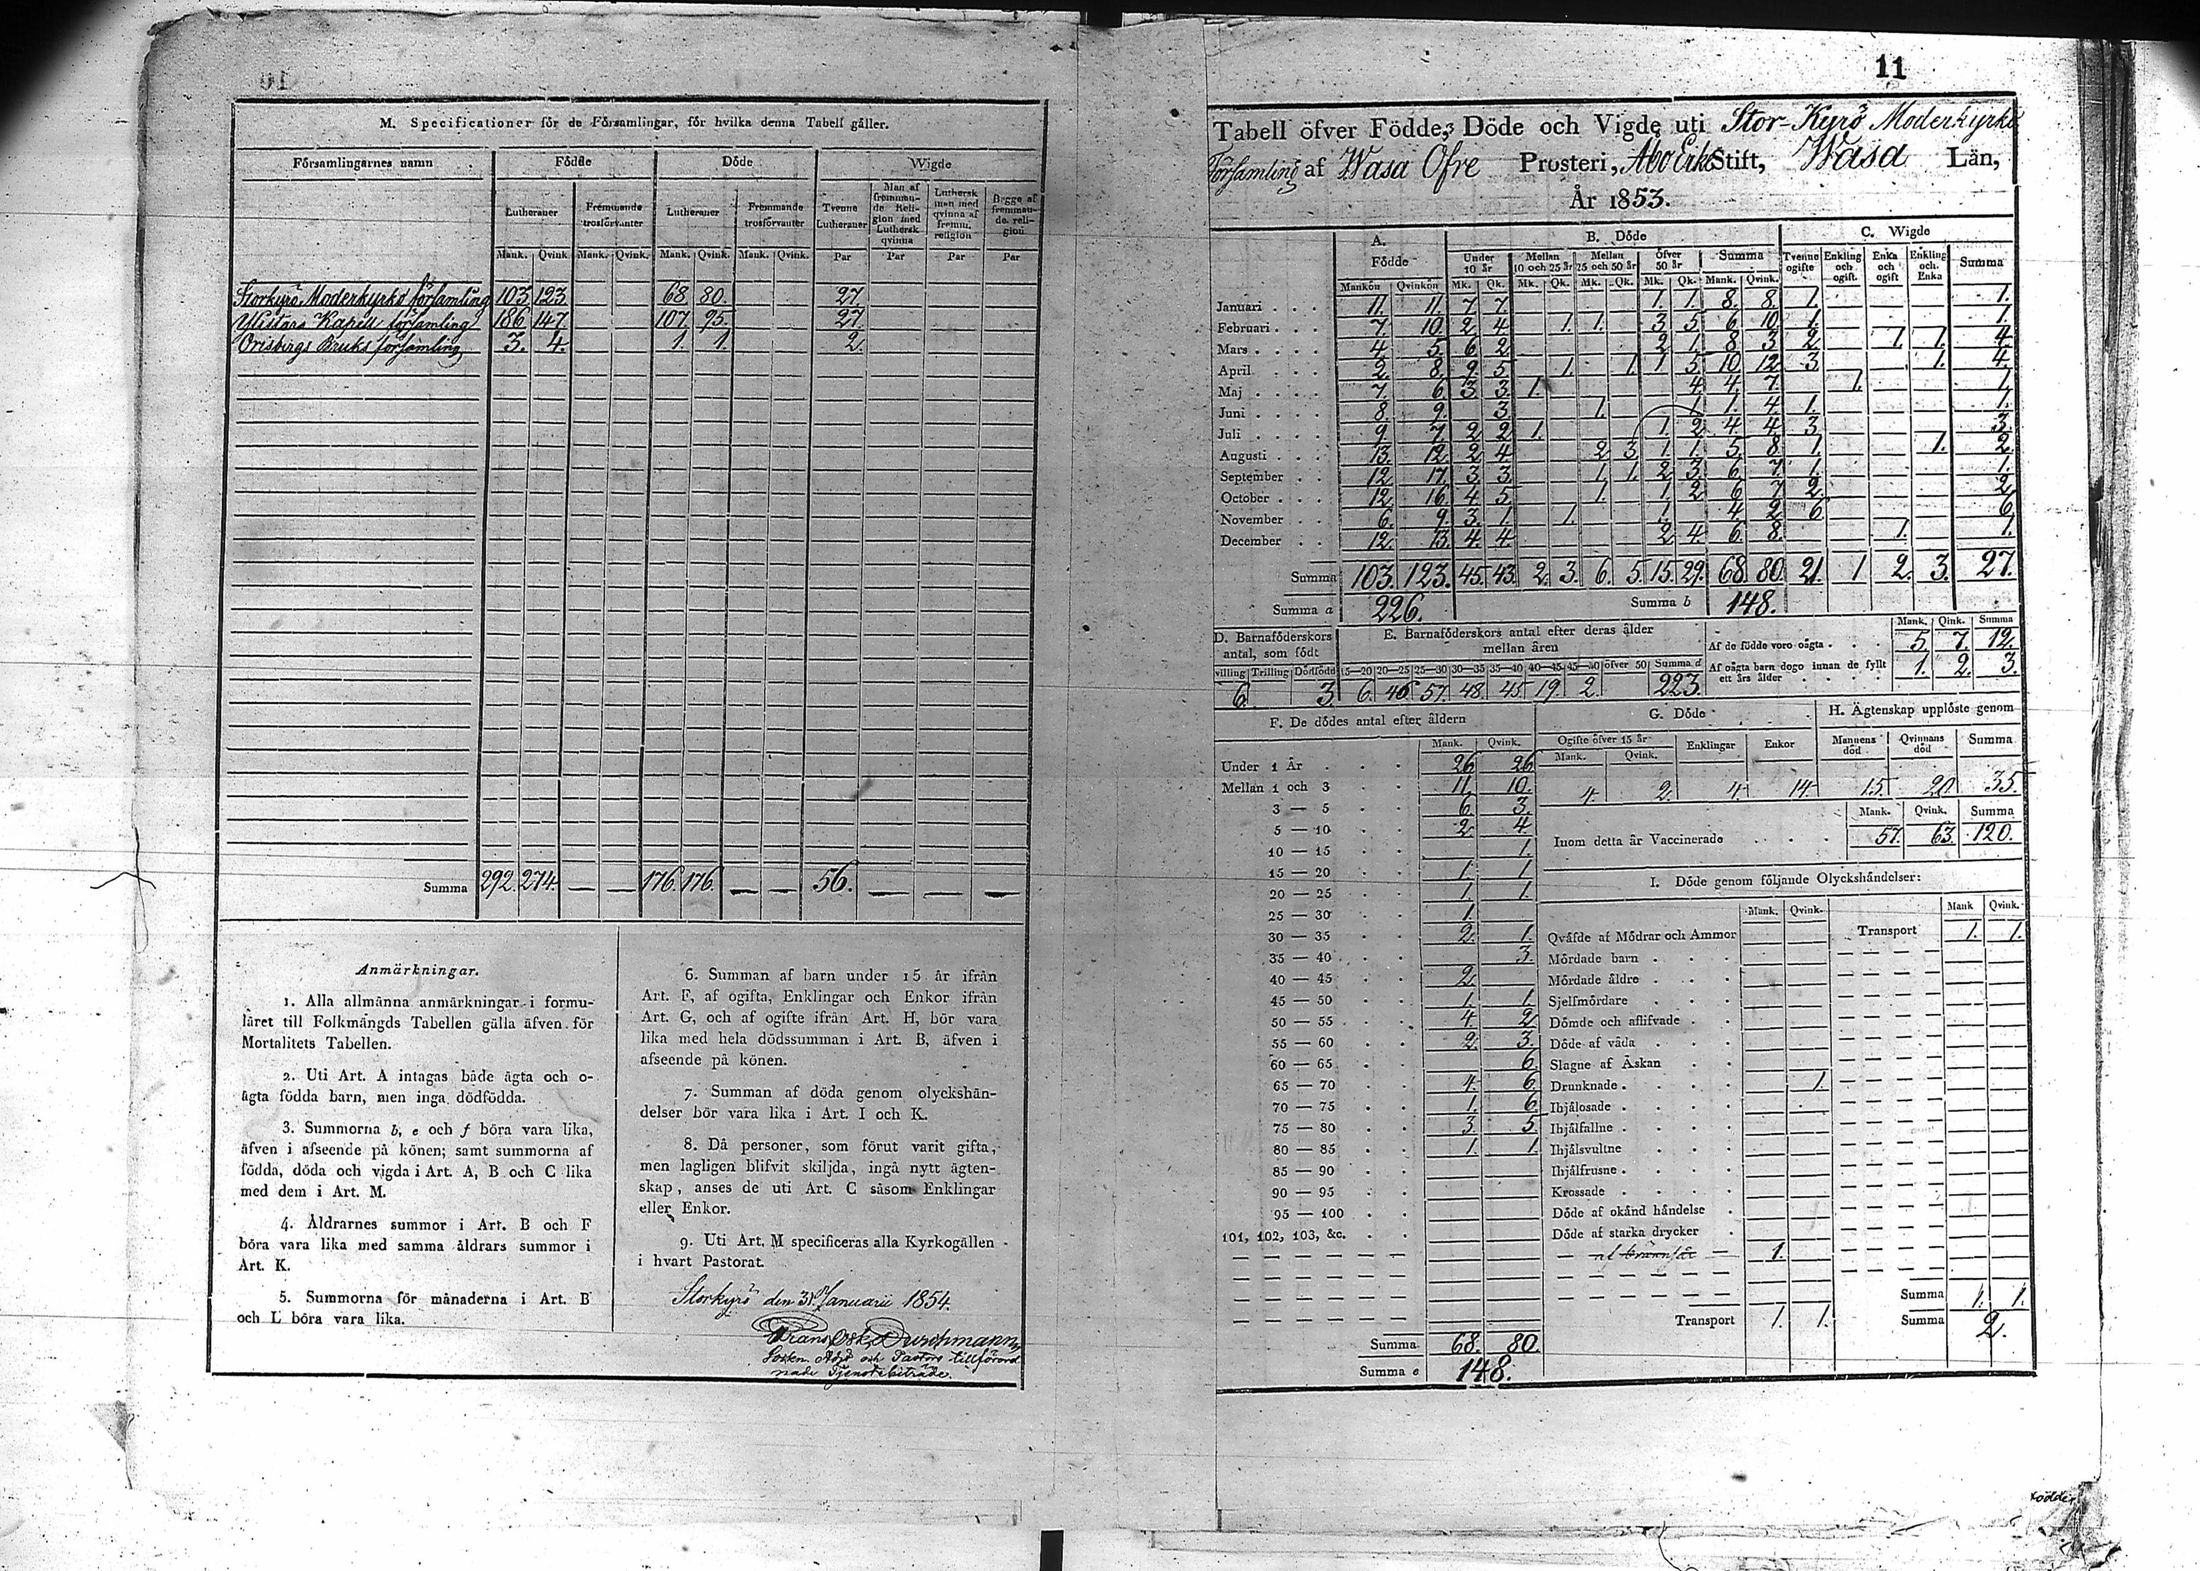 10
M. Specificationer för de Församlingar, för hvilka denna Tabell gäller.
Församlingarnes namn Födde Döde Wigde
Lutheraner Fremmande trosförvanter Lutheraner Fremmande trosförvanter Tvenne Lutheraner Man af fremmande Religion med Luthersk qvinna Luthersk man med qvinna af fremm. religion Begge af fremmande religion
Mank. Qvink. Mank. Qvink. Mank. Qvink. Mank. Qvink. Par Par Par Par
Storkyrö Moderkyrko församling 103 123 68 80. 27.
Ylistaro Kapell församling 186 147 107. 95. 27.
Orisbergs Bruks församling 3. 4. 1. 1 2.
Summa 292. 274. — — 176. 176. — — 56. — — —
Anmärkningar.
1. Alla allmänna anmärkningar i formu-
läret till Folkmängds Tabellen gälla äfven för
Mortalitets Tabellen.
2. Uti Art. A intagas både ägta och o-
ägta födda barn, men inga dödfödda.
3. Summorna b, e och f böra vara lika,
äfven i afseende på könen; samt summorna af
födda, döda och vigda i Art. A, B och C lika
med dem i Art. M.
4. Åldrarnes summor i Art. B och F
böra vara lika med samma åldrars summor i
Art. K.
5. Summorna för månaderna i Art. B
och L böra vara lika.
6. Summan af barn under 15 år ifrån
Art. F, af ogifta, Enklingar och Enkor ifrån
Art. G, och af ogifte ifrån Art. H, bör vara
lika med hela dödssumman i Art. B, äfven i
afseende på könen.
7. Summan af döda genom olyckshän-
delser bör vara lika i Art. I och K.
8. Då personer, som förut varit gifta,
men lagligen blifvit skiljda, ingå nytt ägten-
skap, anses de uti Art. C såsom Enklingar
eller Enkor.
9. Uti Art. M specificeras alla Kyrkogällen
i hvart Pastorat.
Storkyrö den 31 Januarii 1854.
Frans Osk. Durchmann
Socken Adj. och Pastors tillförord
nade Tjenstebiträde.
11
Tabell öfver Födde, Döde och Vigde uti Stor-Kyrö Moderkyrko
Församling af Wasa Öfre Prosteri, Åbo Erke Stift, Wasa Län,
År 1853.
A. Födde B. Döde C. Wigde
Under 10 år Mellan 10 och 25 år Mellan 25 och 50 år Öfver 50 år Summa Tvenne ogifte Enkling och ogift Enka och ogift Enkling och Enka Summa
Mankön Qvinkön Mk. Qk. Mk. Qk. Mk. Qk. Mk. Qk. Mank. Qvink.
Januari 11. 11. 7 7. 1. 1. 8. 8. 1. 1.
Februari 7. 10. 2 4. 1. 1. 3 5 6 10. 1. 1.
Mars 4 5. 6 2 2 1. 8 3 2 1 1. 4
April 2 8. 9 5 1. 1. 1 5 10 12 3 1. 4.
Maj 7. 6. 3 3. 1. 4 4 7. 1. 1.
Juni 8. 9. 3. 1. 1 1. 4. 1. 1.
Juli 9. 7. 2 2 1. 1. 2. 4 4 3. 3.
Augusti 13. 12. 2 4 2 3 1 1. 5. 8. 1. 1. 2
September 12. 17. 3 3. 1. 1. 2 3. 6 7. 1. 1.
October 12. 16. 4 5. 1. 1. 2 6 7 2. 2.
November 6. 9. 3. 1. 1. 1. 4 2 6. 6.
December 12. 13. 4. 4. 2 4. 6. 8. 1. 1.
Summa 103. 123. 45. 43. 2. 3. 6. 5. 15. 29. 68. 80. 21. 1 2. 3. 27.
Summa a 226. Summa b 148.
D. Barnaföderskors antal, som födt
villing Trilling Dödfödd
6. 3.
E. Barnaföderskors antal efter deras ålder mellan åren
15—20 20—25 25—30 30—35 35—40 40—45 45—50 öfver 50 Summa d
6. 46 57. 48. 45 19. 2. 223.
Mank. Qink. Summa
Af de födde voro oägta 5. 7. 12.
Af oägta barn dogo innan de fyllt ett års ålder 1. 2. 3.
F. De dödes antal efter åldern
Mank. Qvink.
Under 1 År 26 26
Mellan 1 och 3 11. 10.
3 — 5 6. 3.
5 — 10 2 4
10 — 15 1.
15 — 20 1. 1
20 — 25 1. 1.
25 — 30 1.
30 — 35 2. 1.
35 — 40 3.
40 — 45 2.
45 — 50 1. 1.
50 — 55 4. 2
55 — 60 2. 3.
60 — 65 6.
65 — 70 4. 6.
70 — 75 1. 6.
75 — 80 3. 5
80 — 85 1. 1.
85 — 90
90 — 95
95 — 100
101, 102, 103, &c.
Summa 68. 80.
Summa e 148.
G. Döde
Ogifte öfver 15 år Enklingar Enkor
Mank. Qvink.
4. 2. 4. 14.
H. Ägtenskap upplöste genom
Mannens död Qvinnans död Summa
15. 20 35.
Mank. Qvink. Summa
Inom detta år Vaccinerade 57. 63. 120.
I. Döde genom följande Olyckshändelser:
Mank. Qvink. Mank Qvink.
Qväfde af Mödrar och Ammor Transport 1. 1.
Mördade barn
Mördade äldre
Sjelfmördare
Dömde och aflifvade
Döde af våda
Slagne af Åskan
Drunknade 1.
Ihjälosade
Ihjälfallne
Ihjälsvultne
Ihjälfrusne
Krossade
Döde af okänd händelse
Döde af starka drycker
af brännsår 1.
Summa 1. 1.
Transport 1. 1. Summa 2.